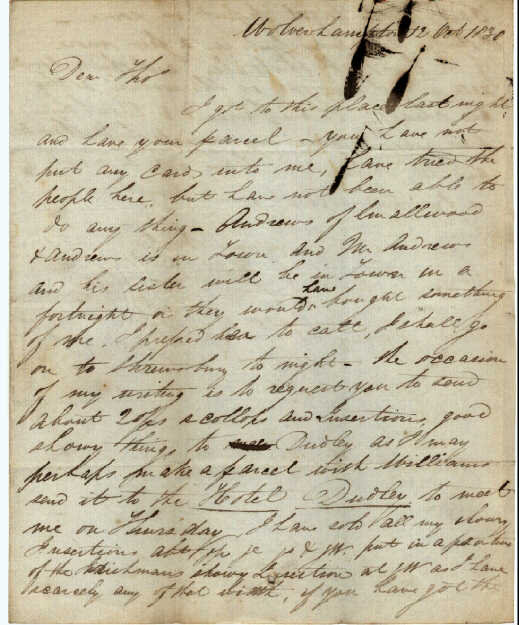 Wolverhampton 12 Oct 1830
Dear Thos
I got to this place last night
and have your parcel – you have not
put any cards into me, have tried the
people here, but have not been able to
do any thing – Andrews of Smallwood
& Andrews is in Town and Mr Andrews
and his sister will be in Town in a
fortnight or they would have bought something
of me. I pressed her to call, I shall go
on to Shrewsbury to night – the occasion
of my writing is to request you to send
about 20 ps scollops and Insertions, good
showy things to Dudley as I may
perhaps make a parcel with Williams
send it to the Hotel Dudley to meet
me on Thursday I have sold all my showy
Insertions at & put in a
of the showy Insertion at as I have
scarcely any of that width, if you have got the